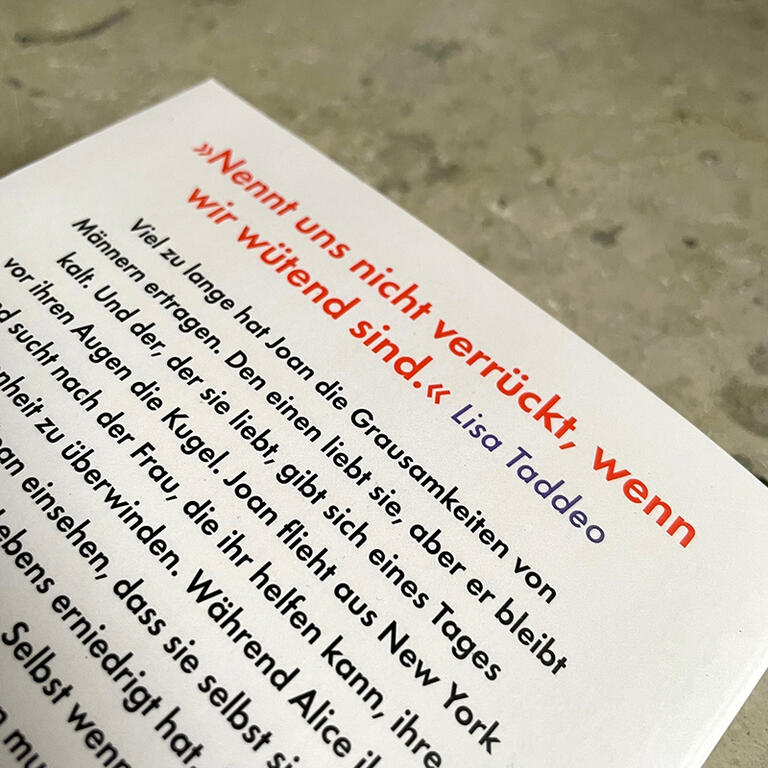 »Nennt uns nicht verrückt, wenn
wir wütend sind.« Lisa Taddeo
Viel zu lange hat Joan die Grausamkeiten von
Männern ertragen. Den einen liebt sie, aber er bleibt
kalt. Und der, der sie liebt, gibt sich eines Tages
vor ihren Augen die Kugel. Joan flieht aus New York
sucht nach der Frau, die ihr helfen kann, ihre
zu überwinden. Während Alice
einsehen, dass sie selbst
erniedrigt hat.
Selbst wenn